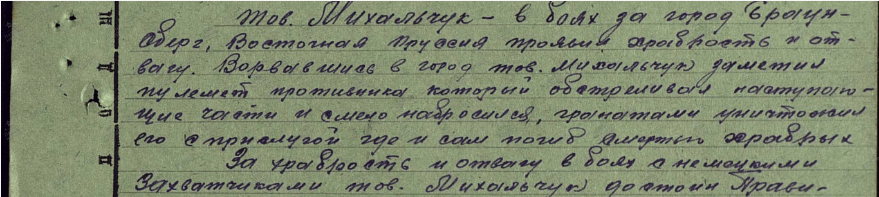 тов. Михальчук – в боях за город Браун-
сберг, Восточная Пруссия проявил храбрость и от-
вагу. Ворвавшись в город тов. Михальчук заметил
пулемет противника который обстреливал наступаю-
щие части и смело набросился, гранатами уничтожил
его с прислугой где и сам погиб смертью храбрых
За храбрость и отвагу в боях с немецкими
захватчиками тов. Михальчук достоин Прави-